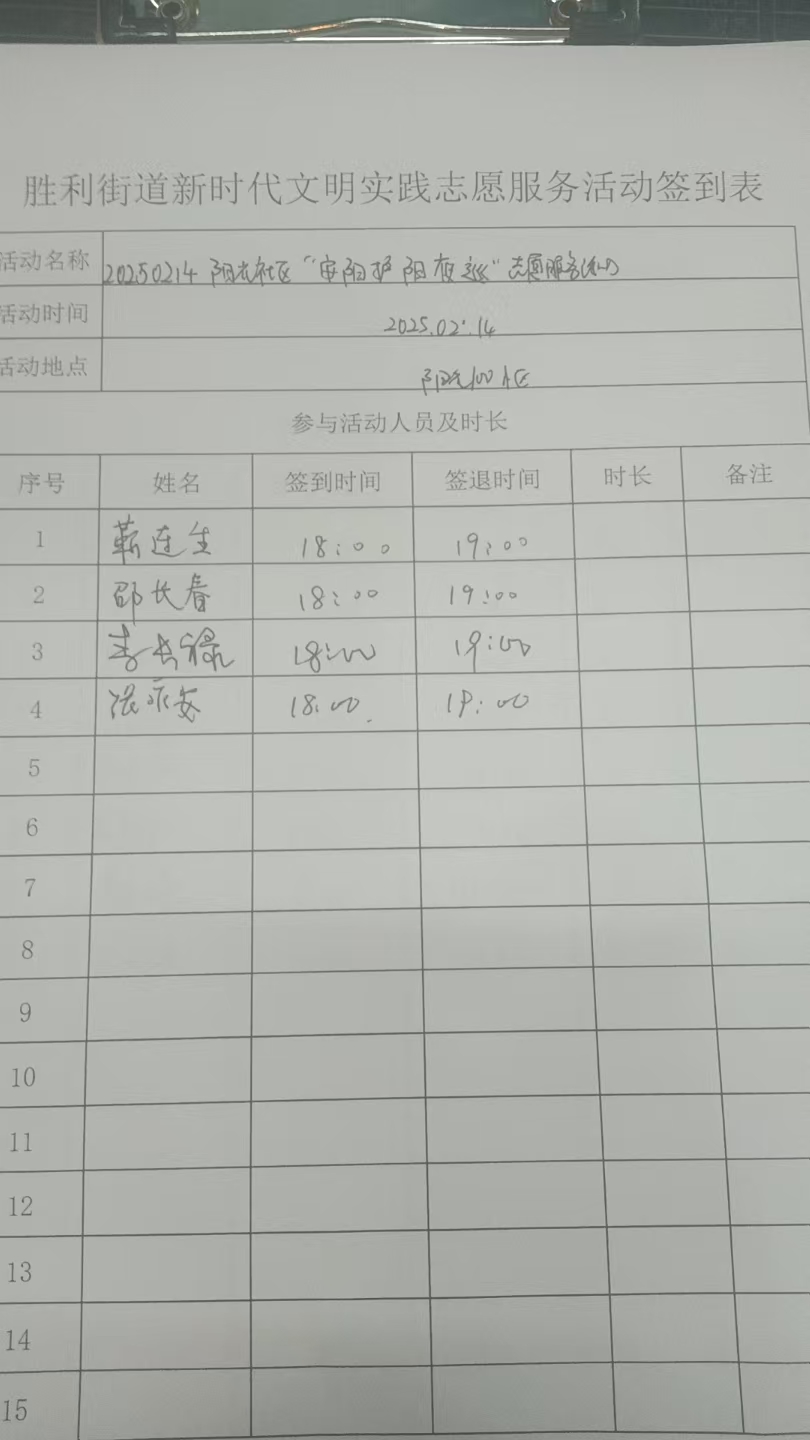 胜利街道新时代文明实践志愿服务活动签到表
活动名称 20250214 阳光社区“安阳护阳夜巡”志愿服务活动
活动时间 2025.02.14
活动地点 阳光100 A区
参与活动人员及时长
序号 姓名 签到时间 签退时间 时长 备注
1 靳连生 18:00 19:00
2 邵长春 18:00 19:00
3 李长禄 18:00 19:00
4 张永安 18:00 19:00
5
6
7
8
9
10
11
12
13
14
15